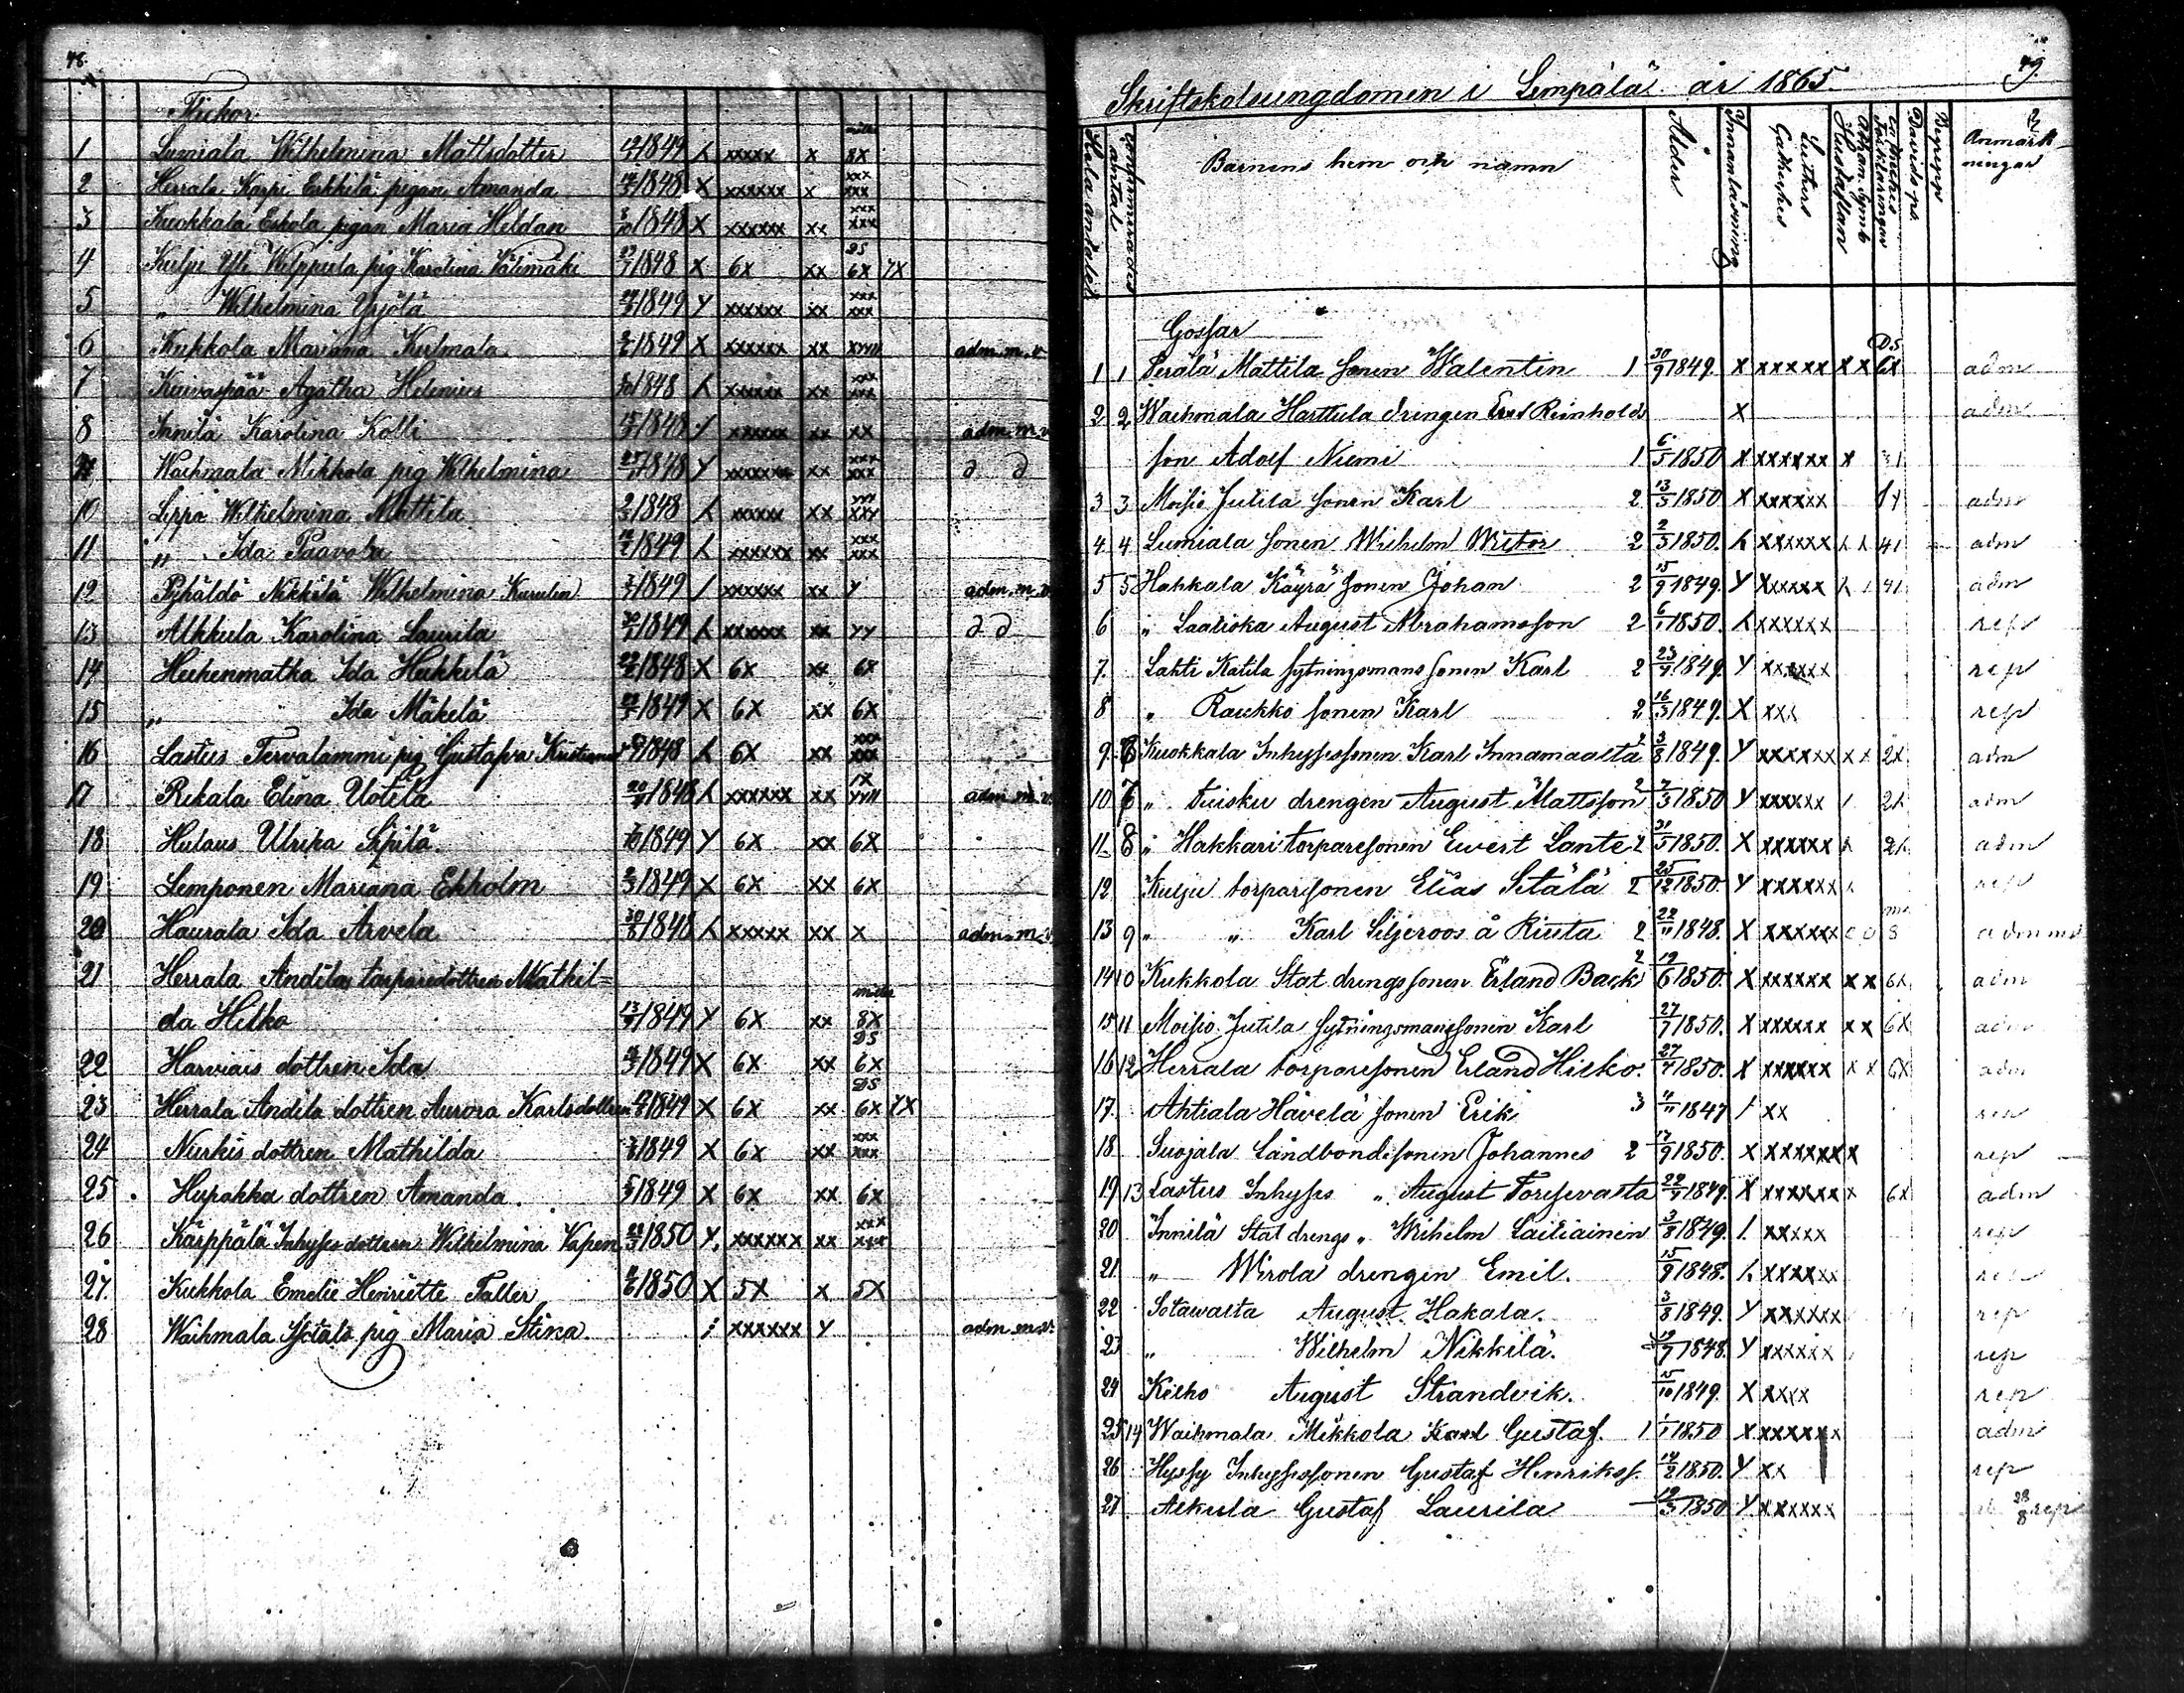 Flickor
1 Lumiala Wilhelmina Mattsdotter 1849 xxxxx x 8X
2 Herrala Karpi Erkkilä pigan Amanda 1848 X xxxxxx x xxx xxx
3 Kuokkala Eskola pigan Maria Heldan 1848 X xxxxxx xx xxx xxx
4 Kulju Yli Wilppula pig Karolina Välimäki 1848 X 6X xx DS 6X 7X
5 " Wilhelmina Yrjölä 1849 Y xxxxxx xx xxx xxx
6 Kukkola Mariana Kulmala 1849 X xxxxxx xx adm. m. v
7 Kuivaspää Agatha Helenius 1848 xxxxxx xx xxx xxx
8 Innilä Karolina Kolli 1848 xxxxxx xx xx adm. m. v
Waihmala Mikkola pig Wilhelmina 1848 Y xxxxxx xx xxx xxx d d
10 Lippo Wilhelmina Mattila 1848 xxxxxx xx
11 " Ida Paavola 1849 xxxxxx xx xxx xxx
12 Pyhäldö Nikkilä Wilhelmina 1849 xxxxxx xx Y adm. m. v
13 Alkkula Karolina Laurila 1849 xxxxxx xx YY d d
14 Heikenmatka Ida Heikkilä 1848 X 6X xx 6X
15 " Ida Mäkelä 1849 X 6X xx 6X
16 Lastus Tervalammi pig Gustafva 1848 6X xx xxx xxx
17 Rikala Elina Uotila 1848 xxxxxx xx adm. m. v.
18 Hulaus Ulrika Sipilä 1849 Y 6X xx 6X
19 Lemponen Mariana Ekholm 1849 X 6X xx 6X
20 Haurala Ida Arvela 1848 xxxxx xx x adm. m. v.
21 Herrala Andila torparedottren Mathil=
da Hilko 13/9 1849 Y 6X xx 8X
22 Harviais dottren Ida 1849 X 6X xx DS 6X
23 Herrala Andila dottren Aurora Karlsdotter 1849 X 6X xx DS 6X 7X
24 Nurkis dottren Mathilda 1849 X 6X xx xxx xxx
25 Hupakka dottren Amanda 1849 X 6X xx 6X
26 Kärppälä Inhyses dottren Wilhelmina Vapen 1850 Y xxxxxx xx xxx xxx
27 Kukkola Emelie Henriette Faller 1850 X 5X x 5X
28 Waihmala pig Maria Stina xxxxxx Y adm. m. v.
79.
Skriftskolsungdomen i Lempälä år 1865.
Barnens hem och namn Ålder Innanläsning Luthers Catheches Hustaflan Davids ps. Begrepp Anmärkningar
Gossar
1 1 Perälä Mattila sonen Walentin 1 30/9 1849. X xxxxx x x DS 6X adm
2 2 Waihmala Harttula drengen Reinholds X adm
son Adolf Niemi 1 6/5 1850 X xxxxxx x
3 3 Moisio Jutila sonen Karl 2 13/3 1850 X xxxxxx adm
4 4 Lumiala sonen Wilhelm Wictor 2 2/3 1850. xxxxxx adm
5 5 Hahkala Käyrä sonen Johan 2 15/9 1849. Y xxxxxx adm
6 " Laalioka August Abrahamsson 2 6/1 1850. xxxxxx rep
7. Lahti Katila sytningsmans sonen Karl 2 23/9 1849. Y xxxxxx rep
8 " Raukko sonen Karl 2 16/3 1849. X xxx rep
9. 6 Kuokkala Inhysessonen Karl Innamaalta 2 3/8 1849. Y xxxxxx x x 2X adm
10 7 " Tuisku drengen August Mattsson 2 7/3 1850 Y xxxxxx adm
11 8 " Hakkari torparesonen Evert Lante 2 31/5 1850. X xxxxxx adm
12 Kulju torparesonen Elias Setälä 2 25/12 1850. Y xxxxxx rep
13 9 " " Karl Siljeroos å Rinta 2 22/11 1848. X xxxxxx adm m v
14 10 Kukkola Stat drengs sonen Erland Back 2 19/6 1850. X xxxxxx x x 6X adm
15 11 Moisio Jutila sytningsmanssonen Karl 27/7 1850. X xxxxxx x x 6X adm
16 12 Herrala torparesonen Erland Hilko. 27/4 1850. X xxxxxx x x 6X adm
17. Ahtiala Hävelä sonen Erik 3 4/11 1847 xx rep
18 Suojala Landbondesonen Johannes 2 17/9 1850. X xxxxxx x rep
19 13 Lastus Inhyses " August 1849. X xxxxxx x 6X adm
20 Innilä Stat drengs " Wilhelm Lailiainen 3/8 1849. xxxxx rep
21 " Wirola drengen Emil. 15/9 1848. xxxxxx rep
22 Sotavalta August Hakala. 3/8 1849. Y xxxxxx rep
23 " Wilhelm Nikkilä. 1848. Y xxxxxx rep
24 Kilho August Strandvik. 15/10 1849. X xxxx rep
25 14 Waihmala Mikkola Karl Gustaf. 1 1/1 1850 X xxxxxx adm
26 Hyssy Inhysessonen Gustaf Henrikss. 1850. Y xx rep
27 Alkula Gustaf Laurila 19/3 1850 Y xxxxxx 28/8 rep